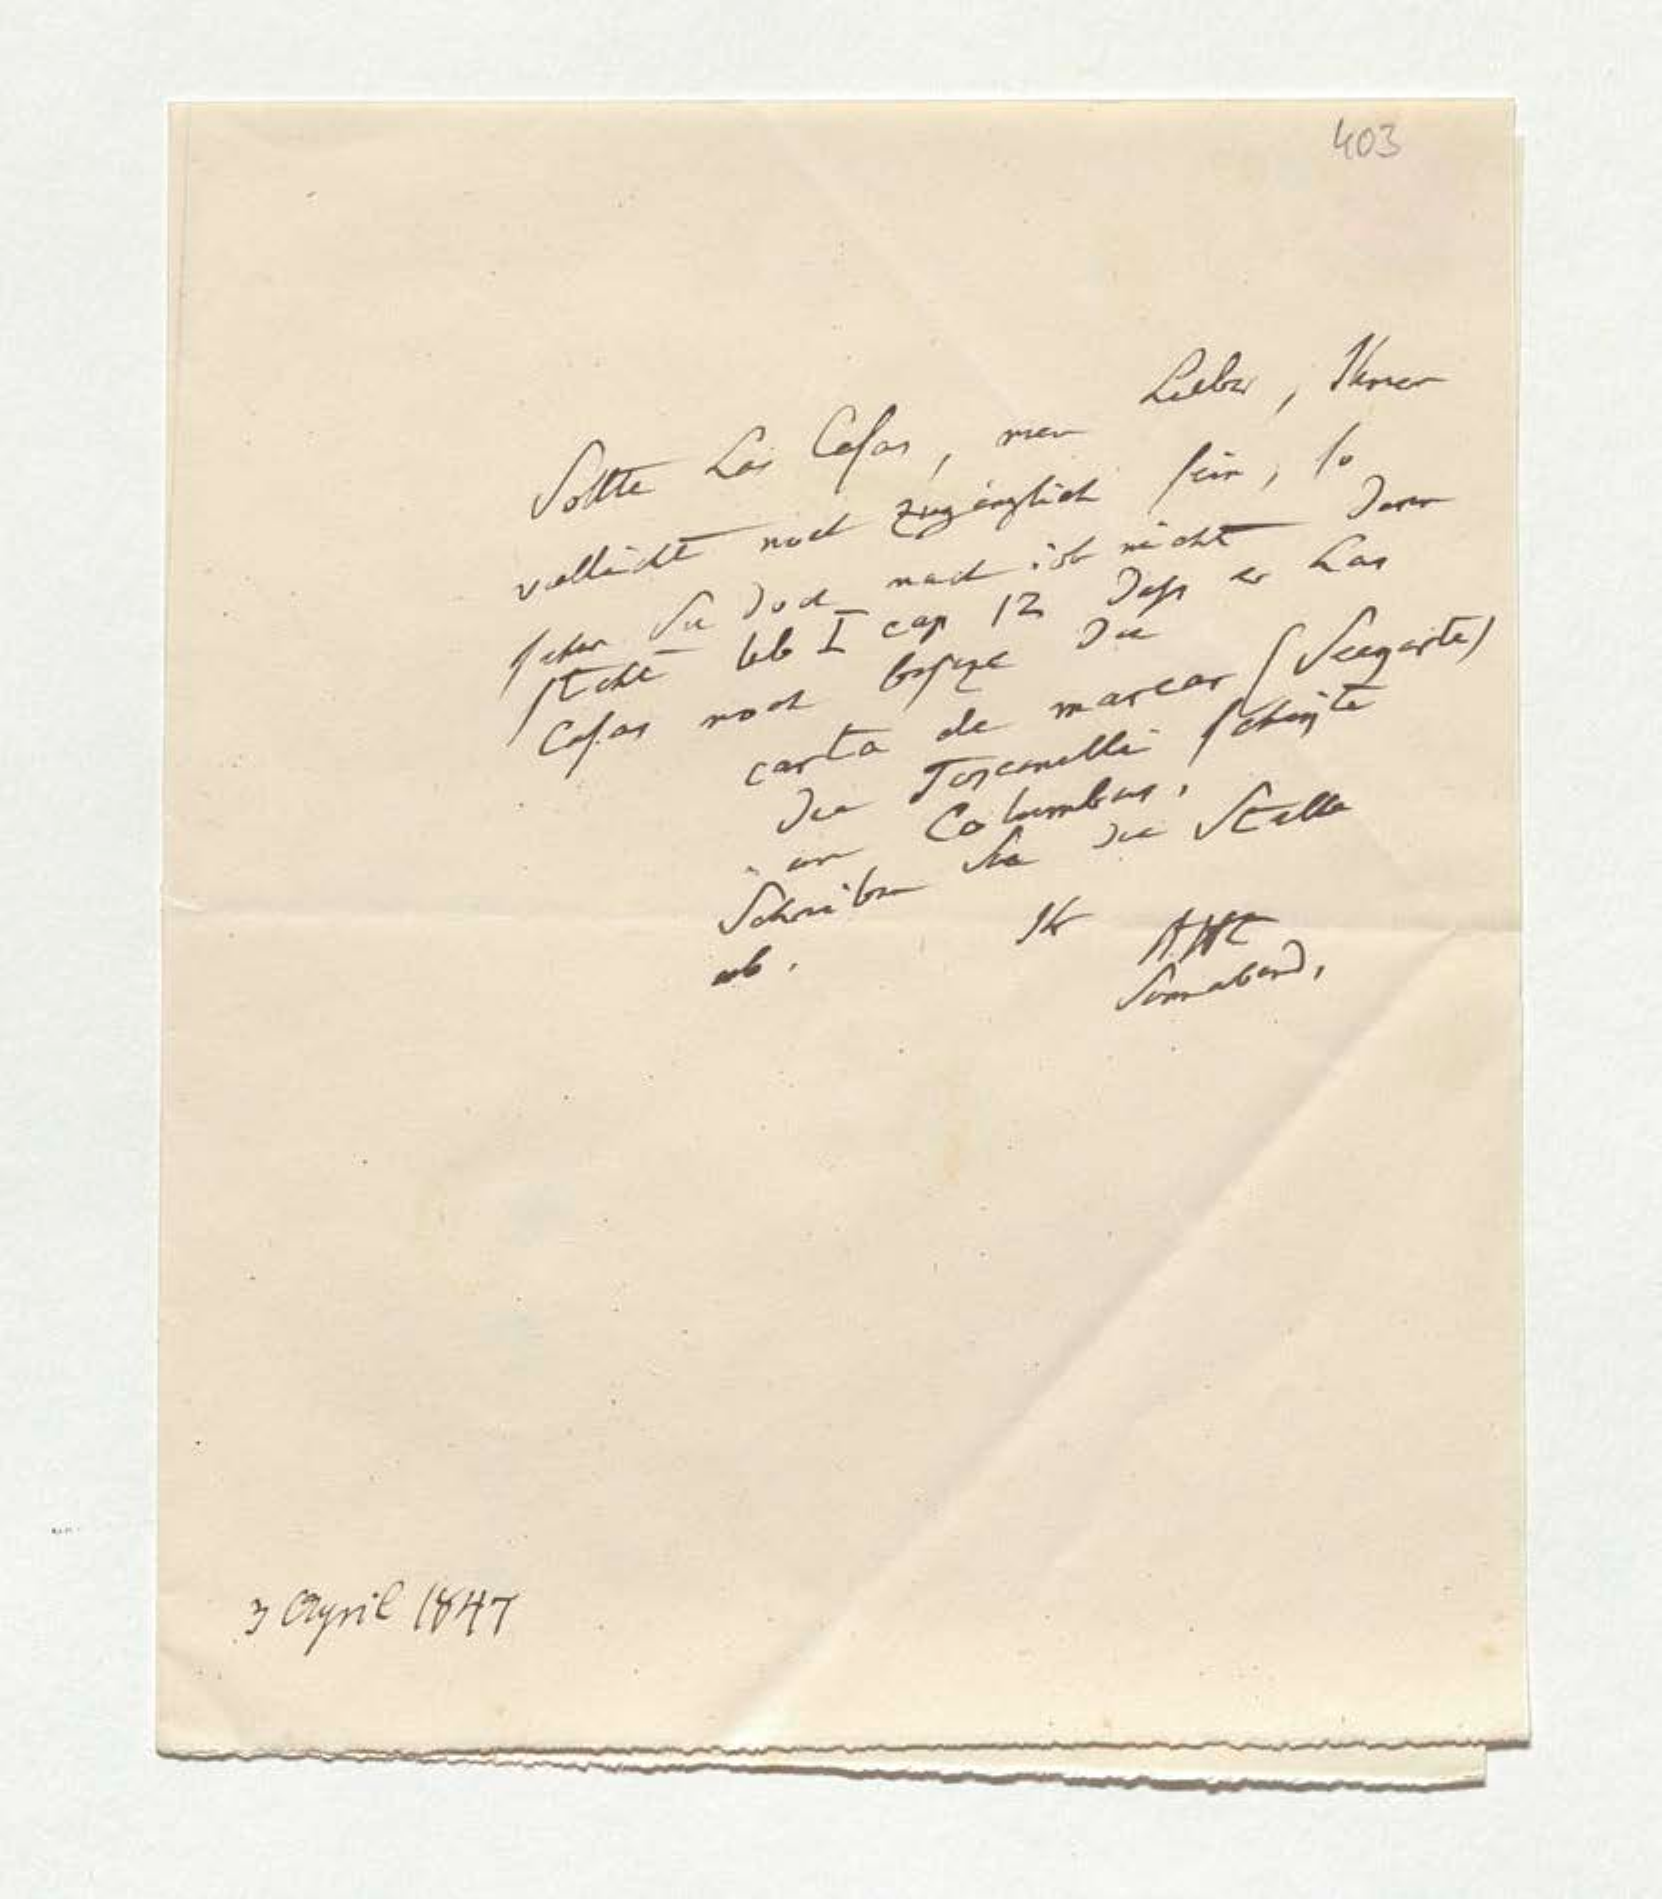 403
Sollte Las Casas, mein Lieber, Ihnen
vielleicht noch zugänglich sein, so
sehen Sie doch nach ob nicht darin
steht lib I cap 12 dass er Las
Casas noch besize die
carta de marear (Seecarte)
die Toscanelli schickte
an Columbus.
Schreiben Sie die Stelle
ab. Ihr AHt
Sonnabend,
3 April 1847